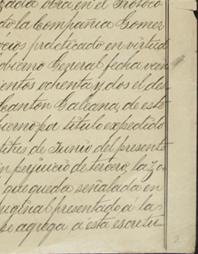 zadia obra en el Protoco
do la Compañia Comer
ocios practicado en virtud
obierno General fecha vein
entos ochenta y dos el des
Canton Galeana, de este
bierno por titulo expedido
titres de Junio del presente
in perjuicio de tercero, la zo
queda señalada en
riginal presentado a la
se agrega a esta escritu